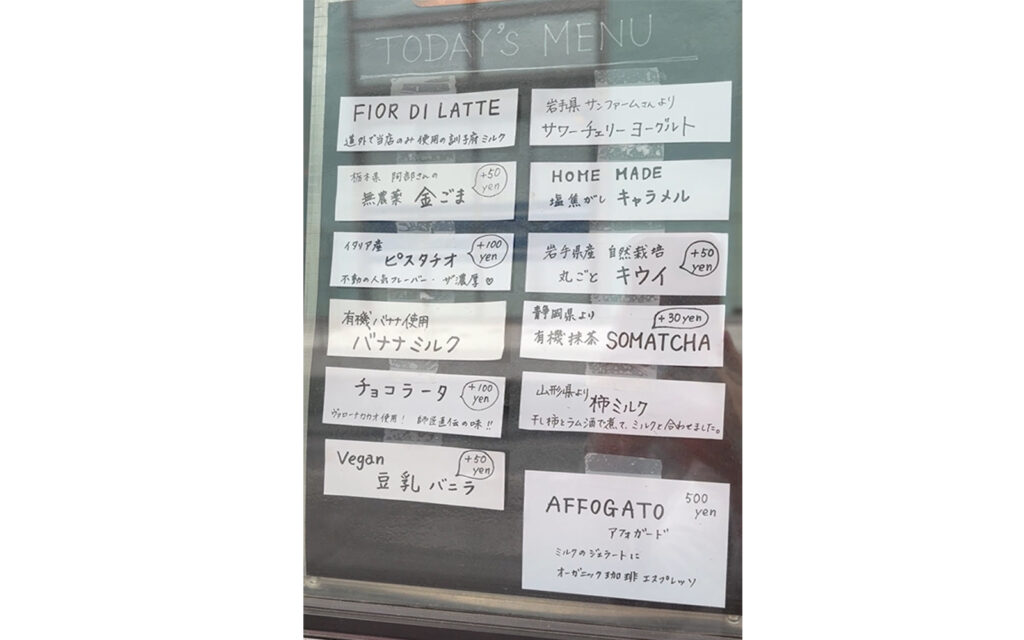 TODAY'S MENU
FIOR DI LATTE
道外で当店のみ使用の訓子府ミルク
栃木県 阿部さんの
無農薬 金ごま
+50
yen
イタリア産
ピスタチオ
+100
yen
不動の人気フレーバー・ザ濃厚♡
有機バナナ使用
バナナミルク
チョコラータ
+100
yen
ヴァローナカカオ使用! 師匠直伝の味!!
Vegan
豆乳 バニラ
+50
yen
岩手県 サンファームさんより
サワーチェリーヨーグルト
HOME MADE
塩焦がし キャラメル
岩手県産 自然栽培
丸ごと キウイ
+50
yen
静岡県より
+30yen
有機抹茶 SOMATCHA
山形県より
柿ミルク
干し柿とラム酒で煮て、ミルクと合わせました。
AFFOGATO
500
yen
アフォガード
ミルクのジェラートに
オーガニック珈琲 エスプレッソ